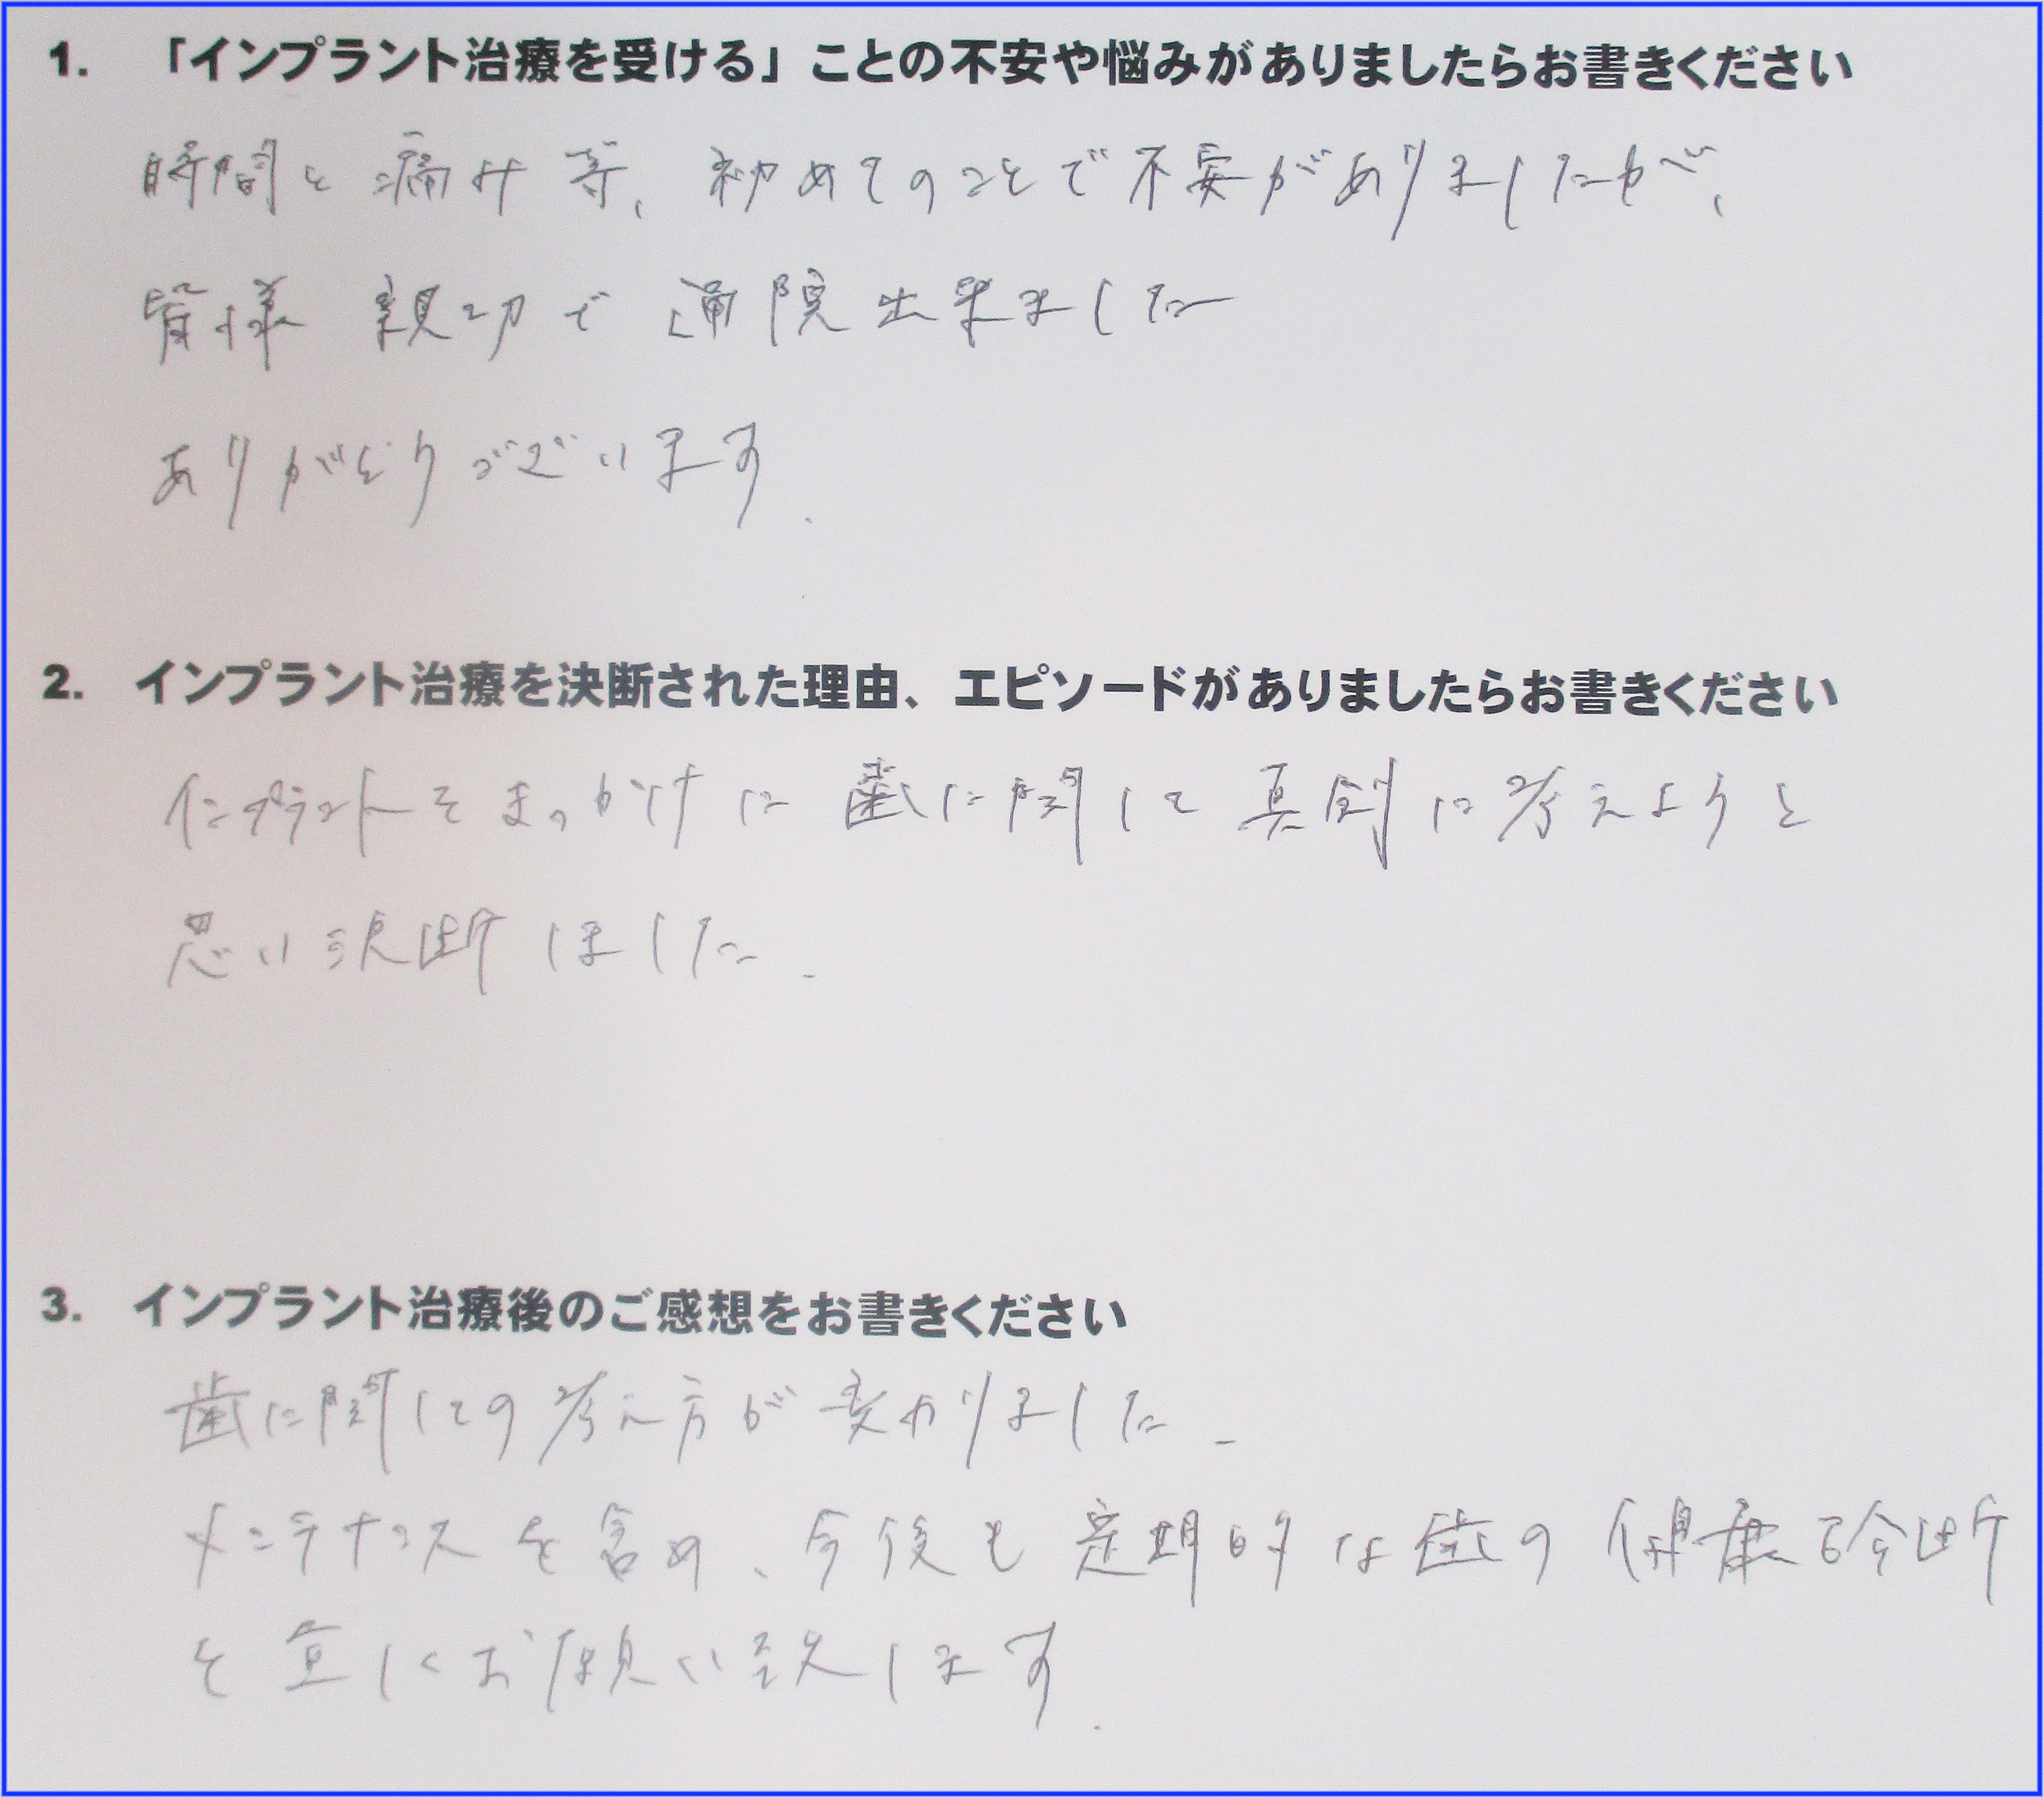 1. 「インプラント治療を受ける」ことの不安や悩みがありましたらお書きください
時間と痛み等、初めてのことで不安がありましたが、
皆様 親切で 通院出来ました
ありがとうございます.
2. インプラント治療を決断された理由、エピソードがありましたらお書きください
インプラントをきっかけに 歯に関して 真剣に考えようと
思い決断しました.
3. インプラント治療後のご感想をお書きください
歯に関しての考え方が変わりました.
メンテナンスを含め、今後も定期的な歯の健康診断
を宜しくお願い致します.